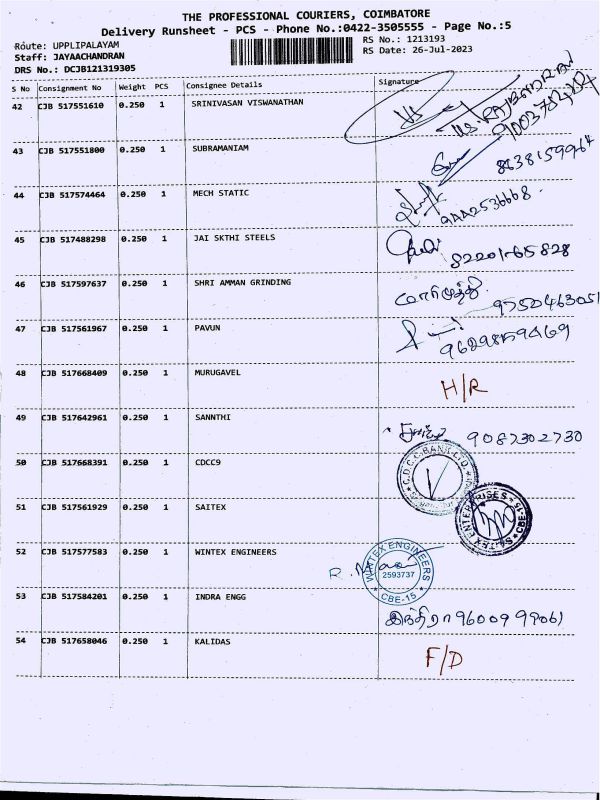 THE PROFESSIONAL COURIERS, COIMBATORE
Delivery Runsheet - PCS - Phone No.:0422-3505555 - Page No.:5
Route: UPPLIPALAYAM
RS No.: 1213193
Staff: JAYAACHANDRAN
RS Date: 26-Jul-2023
DRS No.: DCJB121319305
S No Consignment No Weight PCS Consignee Details Signature
42 CJB 517551610 0.250 1 SRINIVASAN VISWANATHAN
43 CJB 517551800 0.250 1 SUBRAMANIAM 8638159964
44 CJB 517574464 0.250 1 MECH STATIC
45 CJB 517488298 0.250 1 JAI SKTHI STEELS
46 CJB 517597637 0.250 1 SHRI AMMAN GRINDING 9750463051
47 CJB 517561967 0.250 1 PAVUN
48 CJB 517668409 0.250 1 MURUGAVEL H/R
49 CJB 517642961 0.250 1 SANNTHI 9087302730
50 CJB 517668391 0.250 1 CDCC9 C.D.C.C. BANK LTD.
51 CJB 517561929 0.250 1 SAITEX SAITEX ENTERPRISES CBE-15
52 CJB 517577583 0.250 1 WINTEX ENGINEERS WINTEX ENGINEERS 2593737 CBE-15
53 CJB 517584201 0.250 1 INDRA ENGG இந்திரா 9600999061
54 CJB 517658046 0.250 1 KALIDAS F/D